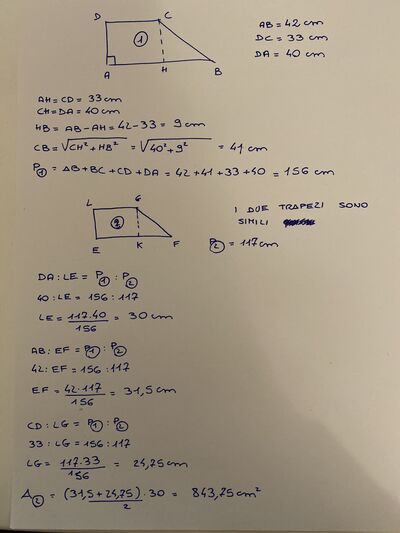 D C
1
A H B
AB = 42 cm
DC = 33 cm
DA = 40 cm
AH = CD = 33 cm
CH = DA = 40 cm
HB = AB - AH = 42 - 33 = 9 cm
CB = √CH² + HB² = √40² + 9² = 41 cm
P1 = AB + BC + CD + DA = 42 + 41 + 33 + 40 = 156 cm
L G
2
E K F
I DUE TRAPEZI SONO
SIMILI
P2 = 117 cm
DA : LE = P1 : P2
40 : LE = 156 : 117
LE = 117·40 / 156 = 30 cm
AB : EF = P1 : P2
42 : EF = 156 : 117
EF = 42·117 / 156 = 31,5 cm
CD : LG = P1 : P2
33 : LG = 156 : 117
LG = 117·33 / 156 = 24,75 cm
A2 = (31,5 + 24,75)·30 / 2 = 843,75 cm²